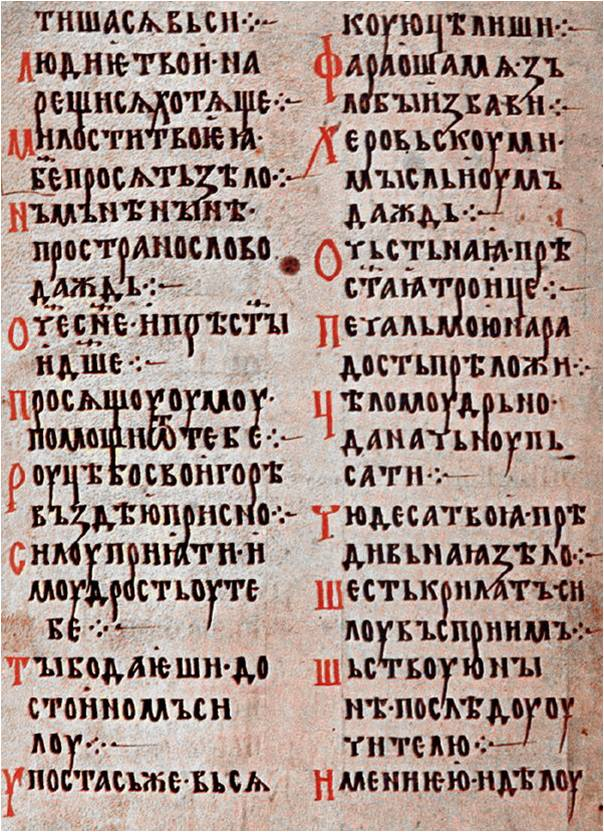 тишасѧвьси·:·
Людиѥтвои·на
рещисѧхотѧще·:·
Милоститвоѥꙗ·
б҃епросѧтьзѣло·:·
Нъмънѣнынѣ·
пространослово
даждь·:·
Оч҃ес҃не·ипрѣст҃ы
ид҃ше·:·
Просѧщоуоумоу·
помощиѿтебе·:·
Роуцѣбосвоигорѣ
въздѣюприсно·:·
Силоуприꙗти·и
моудростьоуте
бе·:·
Тыбодаѥши·до
стоиномъси
лоу·:·
Упостасьже·вьсѧ
коуюцѣлиши·:·
Фараошамѧзъ
лобыизбави·:·
Херовьскоуми·
мысльиоумъ
даждь·:·
Очьстьнаꙗ·прѣ
ст҃аꙗтроице·:·
Печальмоюнара
достьпрѣложи·:·
Цѣломоудрьно·
даначьноупь
сати·:·
Чюдесатвоꙗ·прѣ
дивьнаꙗзѣло·:·
Шестькрилатъ·си
лоувъсприимъ·:·
Шьствоуюны
нѣ·послѣдоуоу
чителю·:·
Имениѥю·идѣлоу